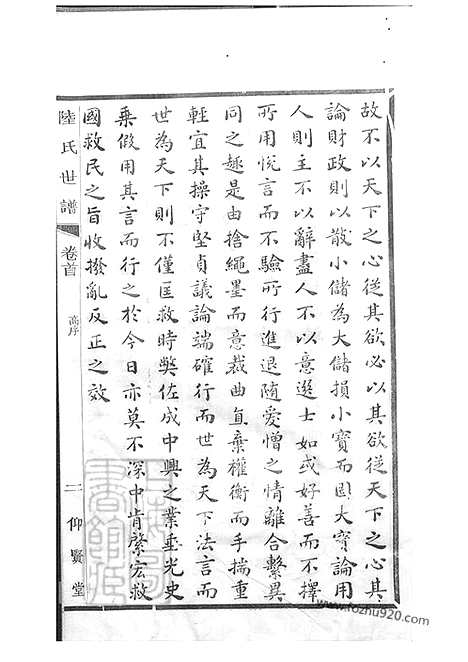 故不以天下之心從其欲必以其欲從天下之心其
論財政則以散小儲為大儲損小寶而固大寶論用
人則主不以辭盡人不以意選士如或好善而不擇
所用悅言而不驗所行進退随愛憎之情離合繫異
同之趣是由捨繩墨而意裁曲直棄權衡而手揣重
輕宜其操守堅貞議論端確行而世為天下法言而
世為天下則不僅匡救時獘佐成中興之業垂光史
乗假用其言而行之於今日亦莫不深中肯綮宏救
國救民之旨收撥亂反正之效
陸氏世譜
卷首
高序
二
仰賢堂
www.fozhu920.com